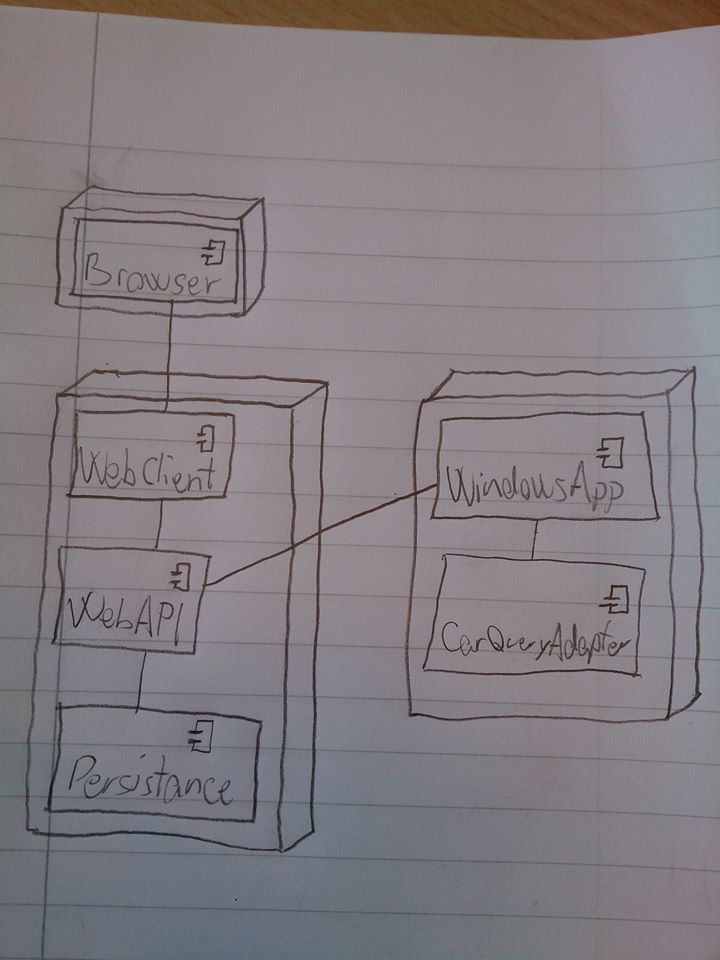 Browser
WebClient
WebAPI
Persistance
WindowsApp
CarQueryAdapter